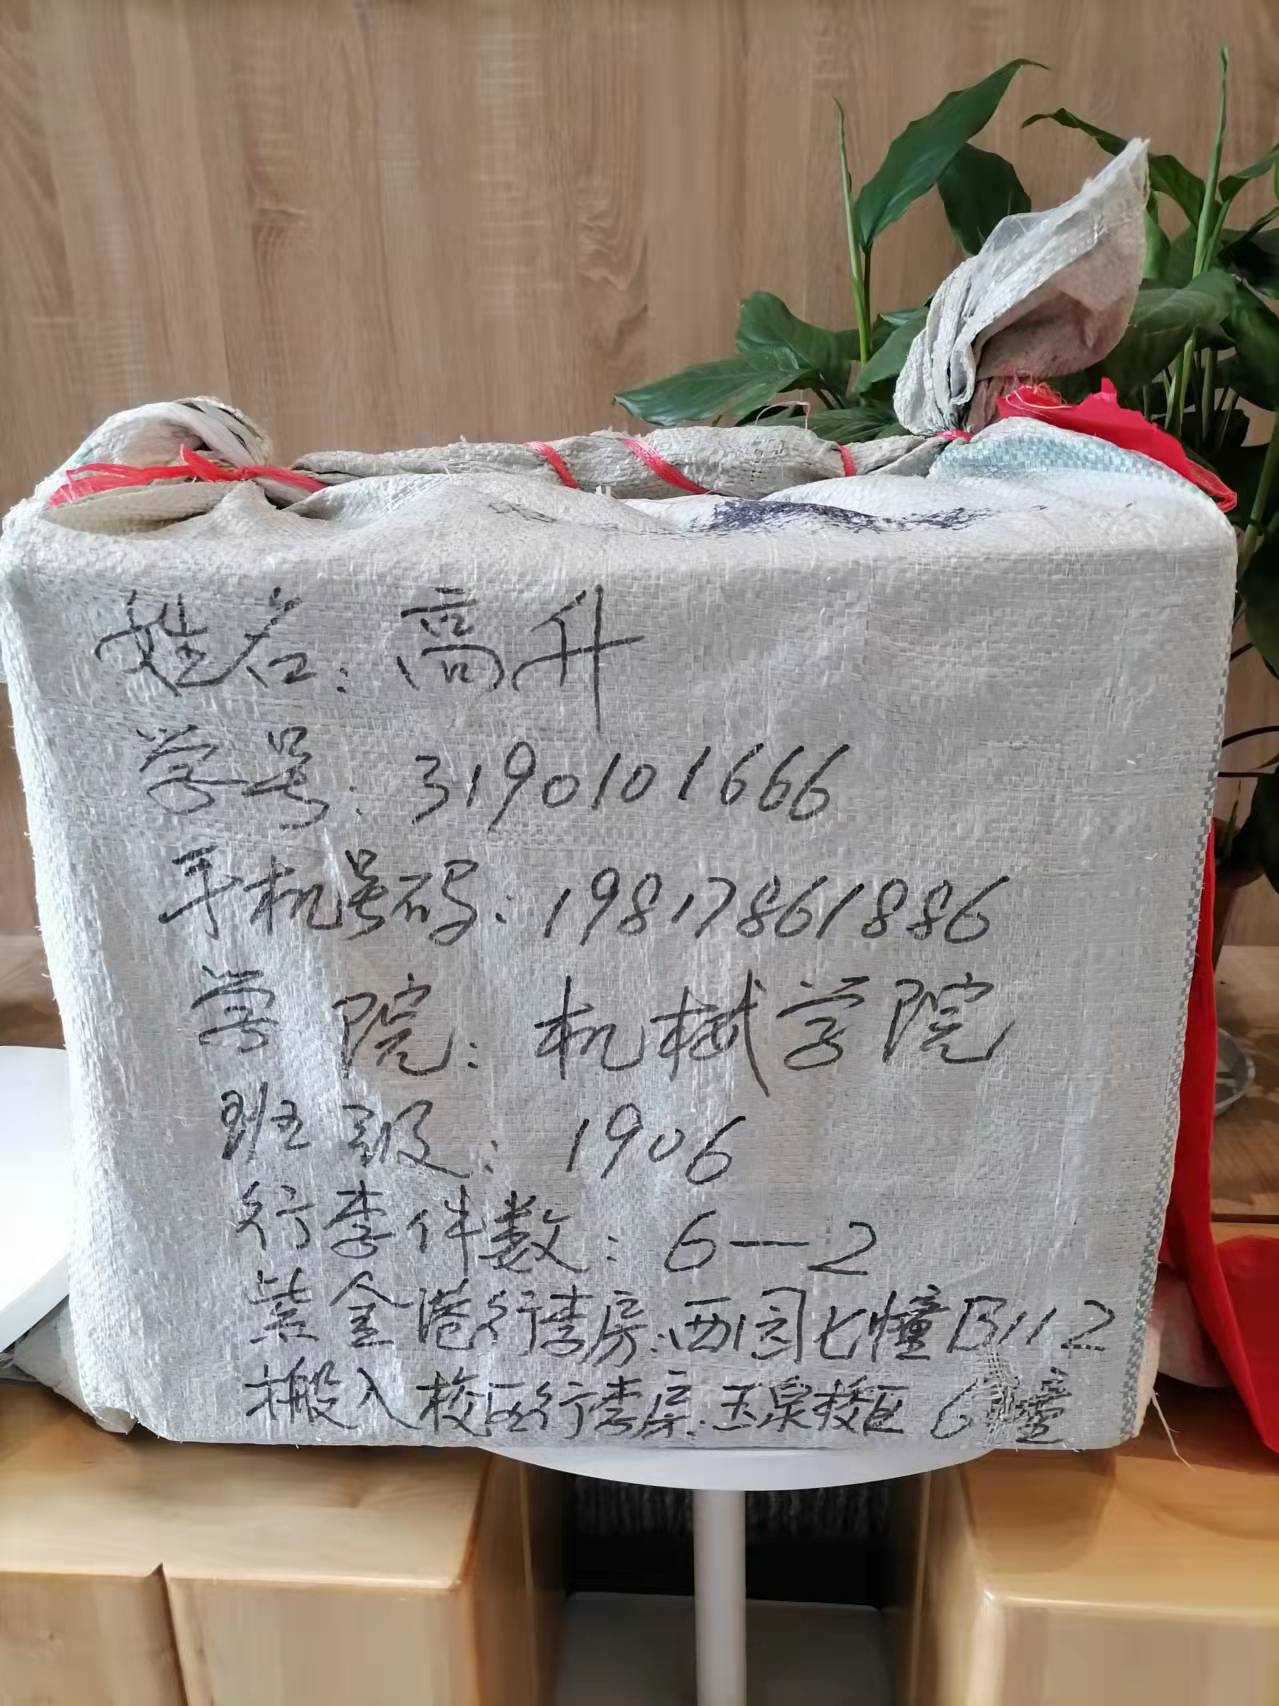 姓名：高升
学号：3190101666
手机号码：19817861886
学院：机械学院
班级：1906
行李件数：6—2
紫金港行李房：西园七幢B112
搬入校区行李房：玉泉校区6幢